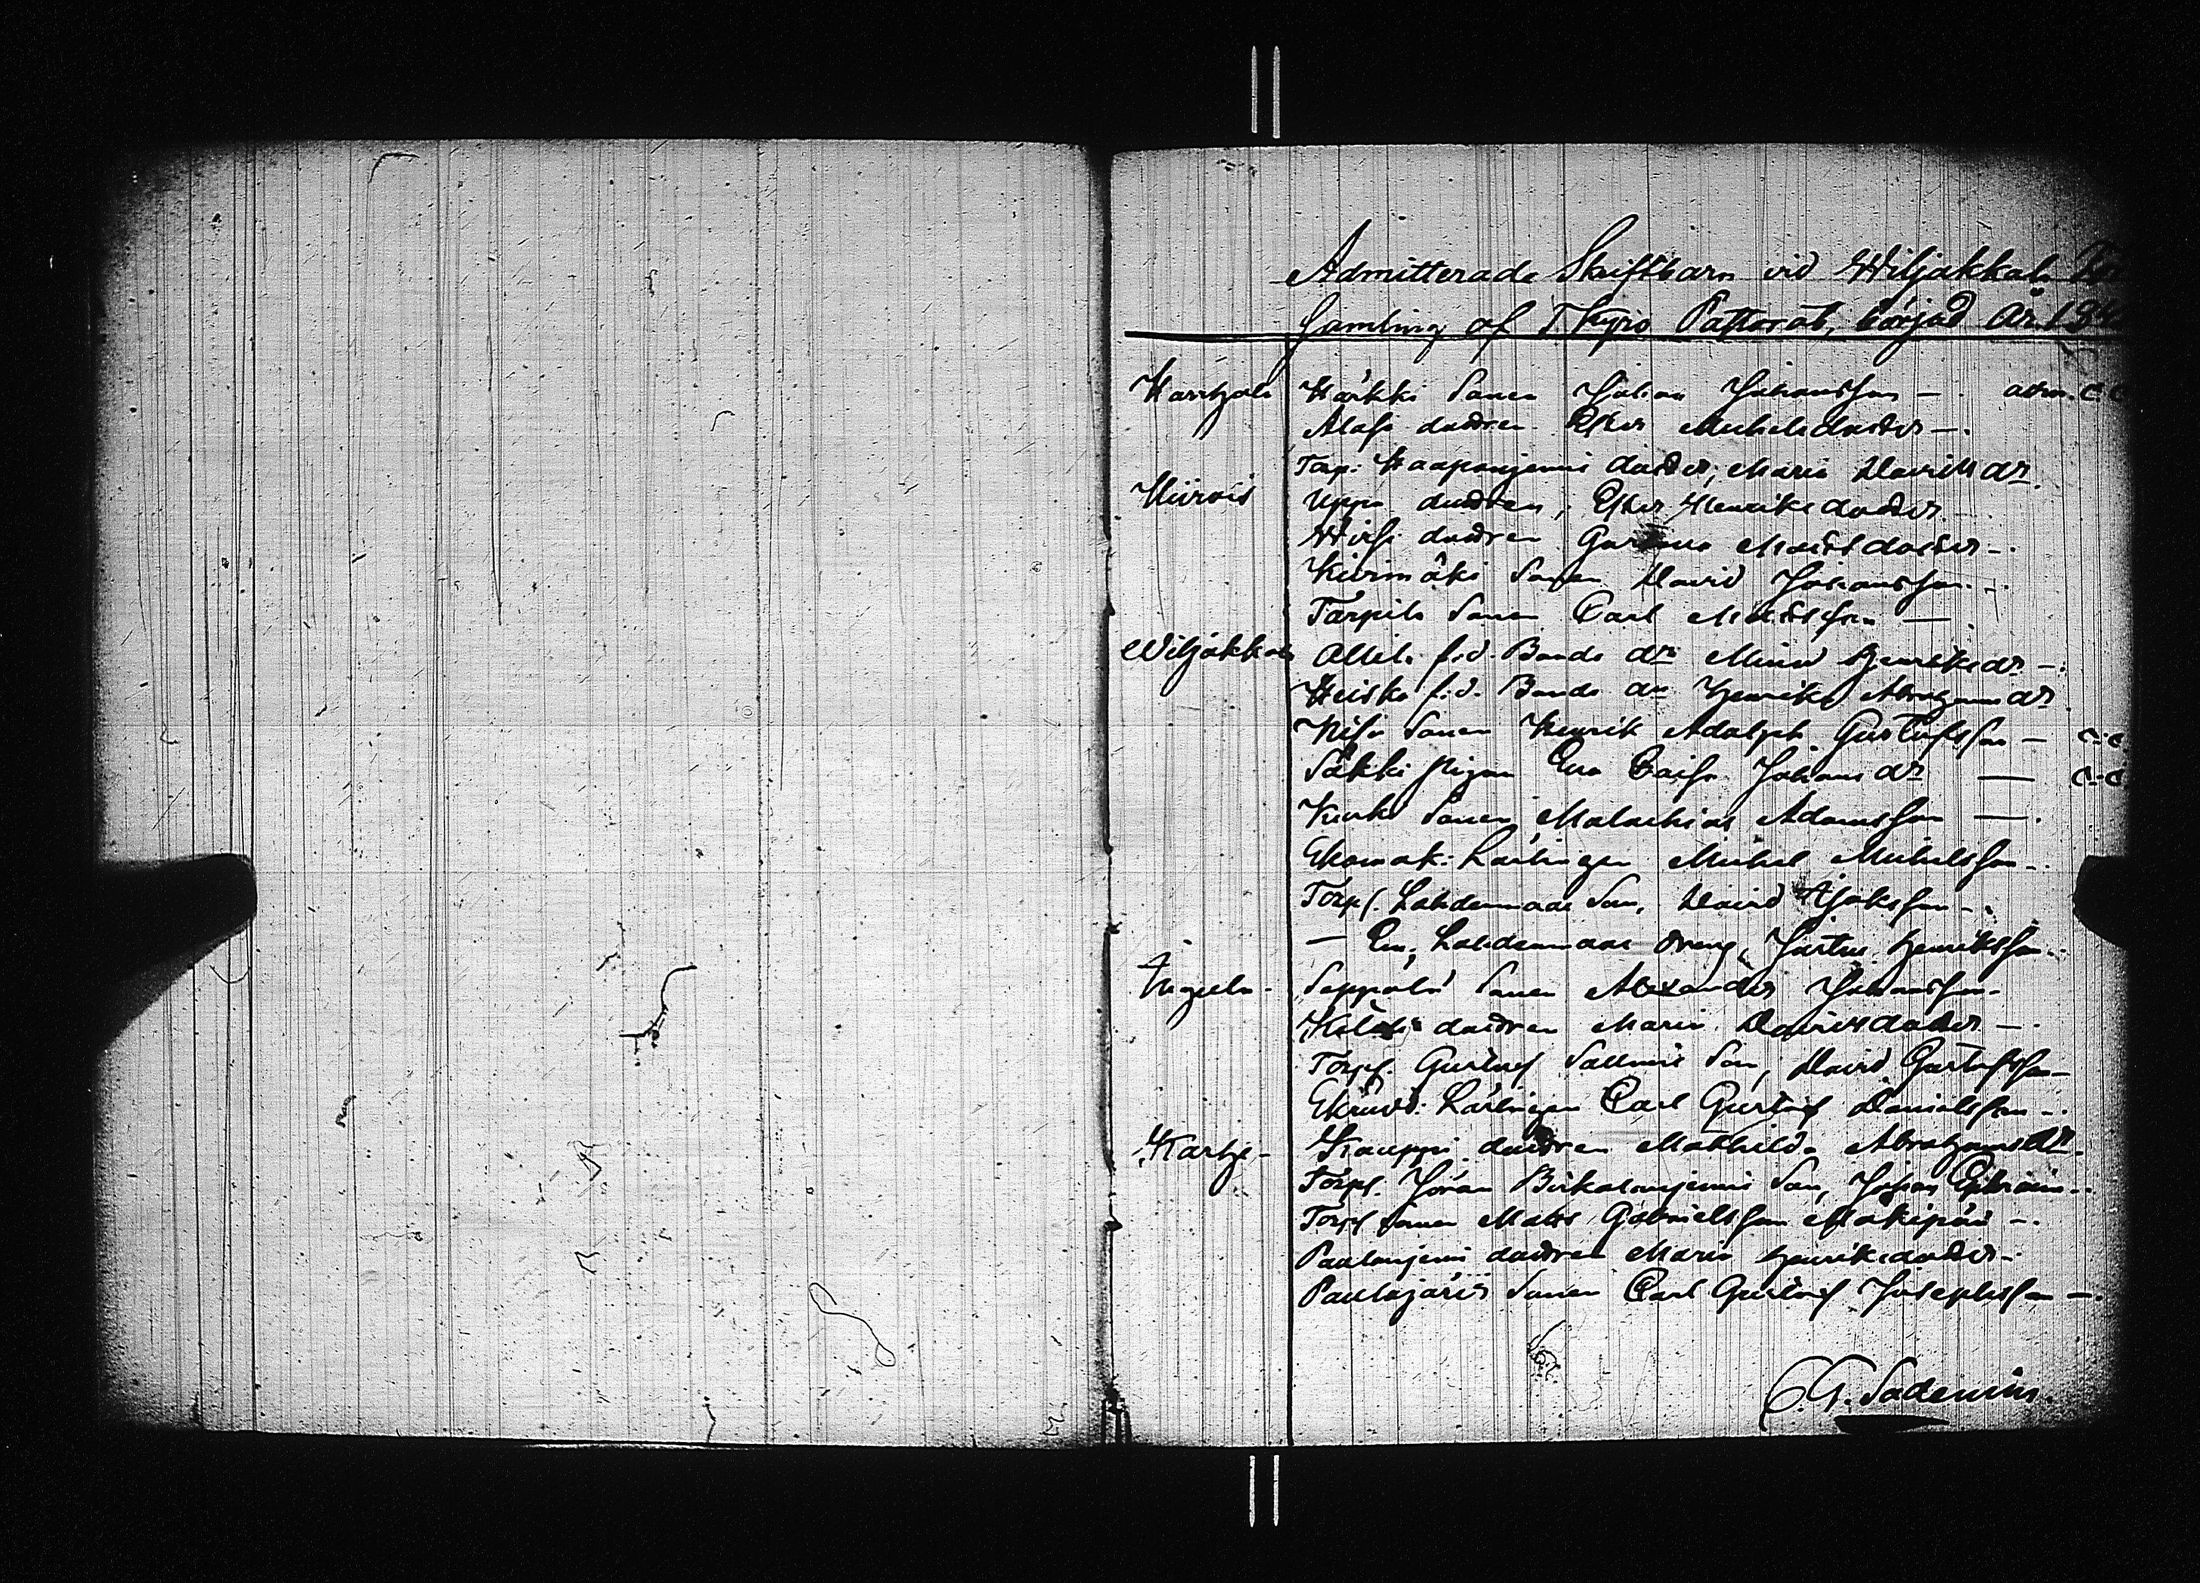 Admitterade Skriftbarn vid Wiljakkala
Samling af T Kyro Pastorat, börjad År 18
Harhala Härkki Sonen Johan Johansson — adm. C C
Alafs dottren Ester Michelsdotter —
Torp. Haapaniemi dotter, Maria Davidsdr.
Hiirois Uppa dottren, Ester Henriksdotter —
Wirsi dottren Gustava Mattsdotter —
Kivimäki Sonen David Johansson —
Torpila Sonen Carl Mattsson —
Wiljakkala Ollila f.d. Bonde dr Mina Henriksdr —
Heiska f.d. Bonde dr Henrika Abrahamsdr
Sonen Henrik Adolph Gustafsson — C. C
Säkki Pigan Eva Caisa Johansdr — C. C
Kurki Sonen Malachias Adamsson —
Skomak. Lärlingen Michel Michelsson —
Torp. Lahdenmaa Son, David Isaksson —
— En, Lahdenmaa dreng, Justus Henriksson —
Inguln - Seppälä Sonen Alexander Johansson —
dottren Maria Davidsdotter —
Torp. Gustaf Sallmis Son, David Gustafsson —
Skrädd. Lärlingen Carl Gustaf Danielsson —
Karhe - Kauppi dottren Mathilda Abrahamsdr.
Torp. Jöran Birkalaniemi Son, Johan Ephraim —
Torp. Sonen Matts Gabrielsson Mäkipää —
Paaloniemi dottren Maria Henriksdotter —
Paulajärvi Sonen Carl Gustaf Josephsson —
C. G. Sadenius.